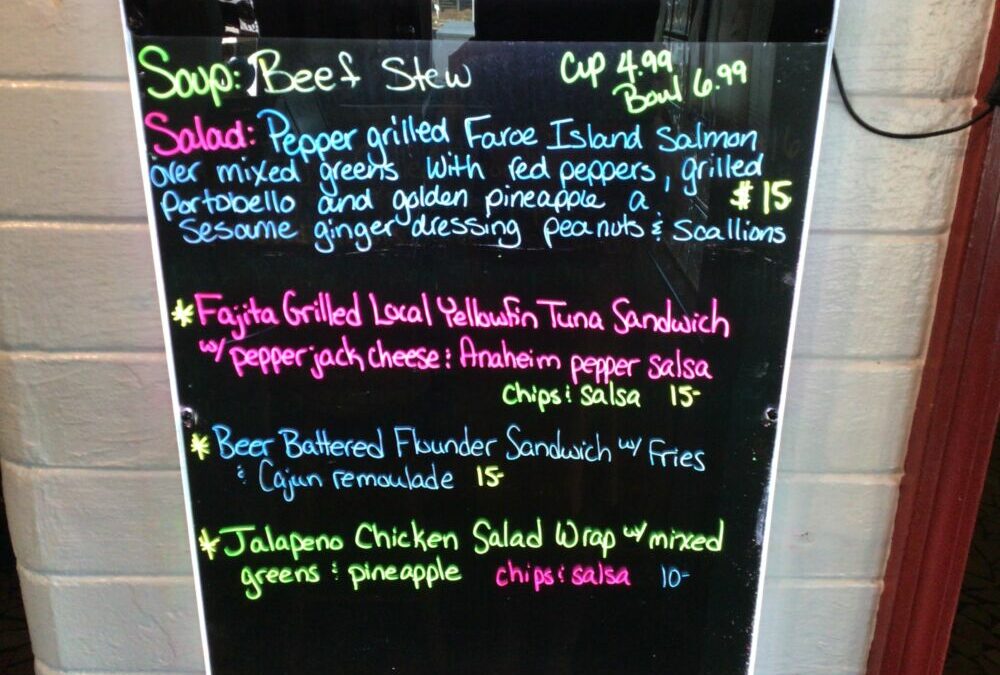 Soup: Beef Stew Cup 4.99
Bowl 6.99
Salad: Pepper grilled Faroe Island Salmon
over mixed greens with red peppers, grilled
Portobello and golden pineapple a $15
Sesame ginger dressing peanuts & Scallions
* Fajita Grilled Local Yellowfin Tuna Sandwich
w/ pepperjack cheese & Anaheim pepper salsa
chips & salsa 15-
* Beer Battered Flounder Sandwich w/ Fries
& Cajun remoulade 15-
* Jalapeno Chicken Salad Wrap w/ mixed
greens & pineapple chips & salsa 10-